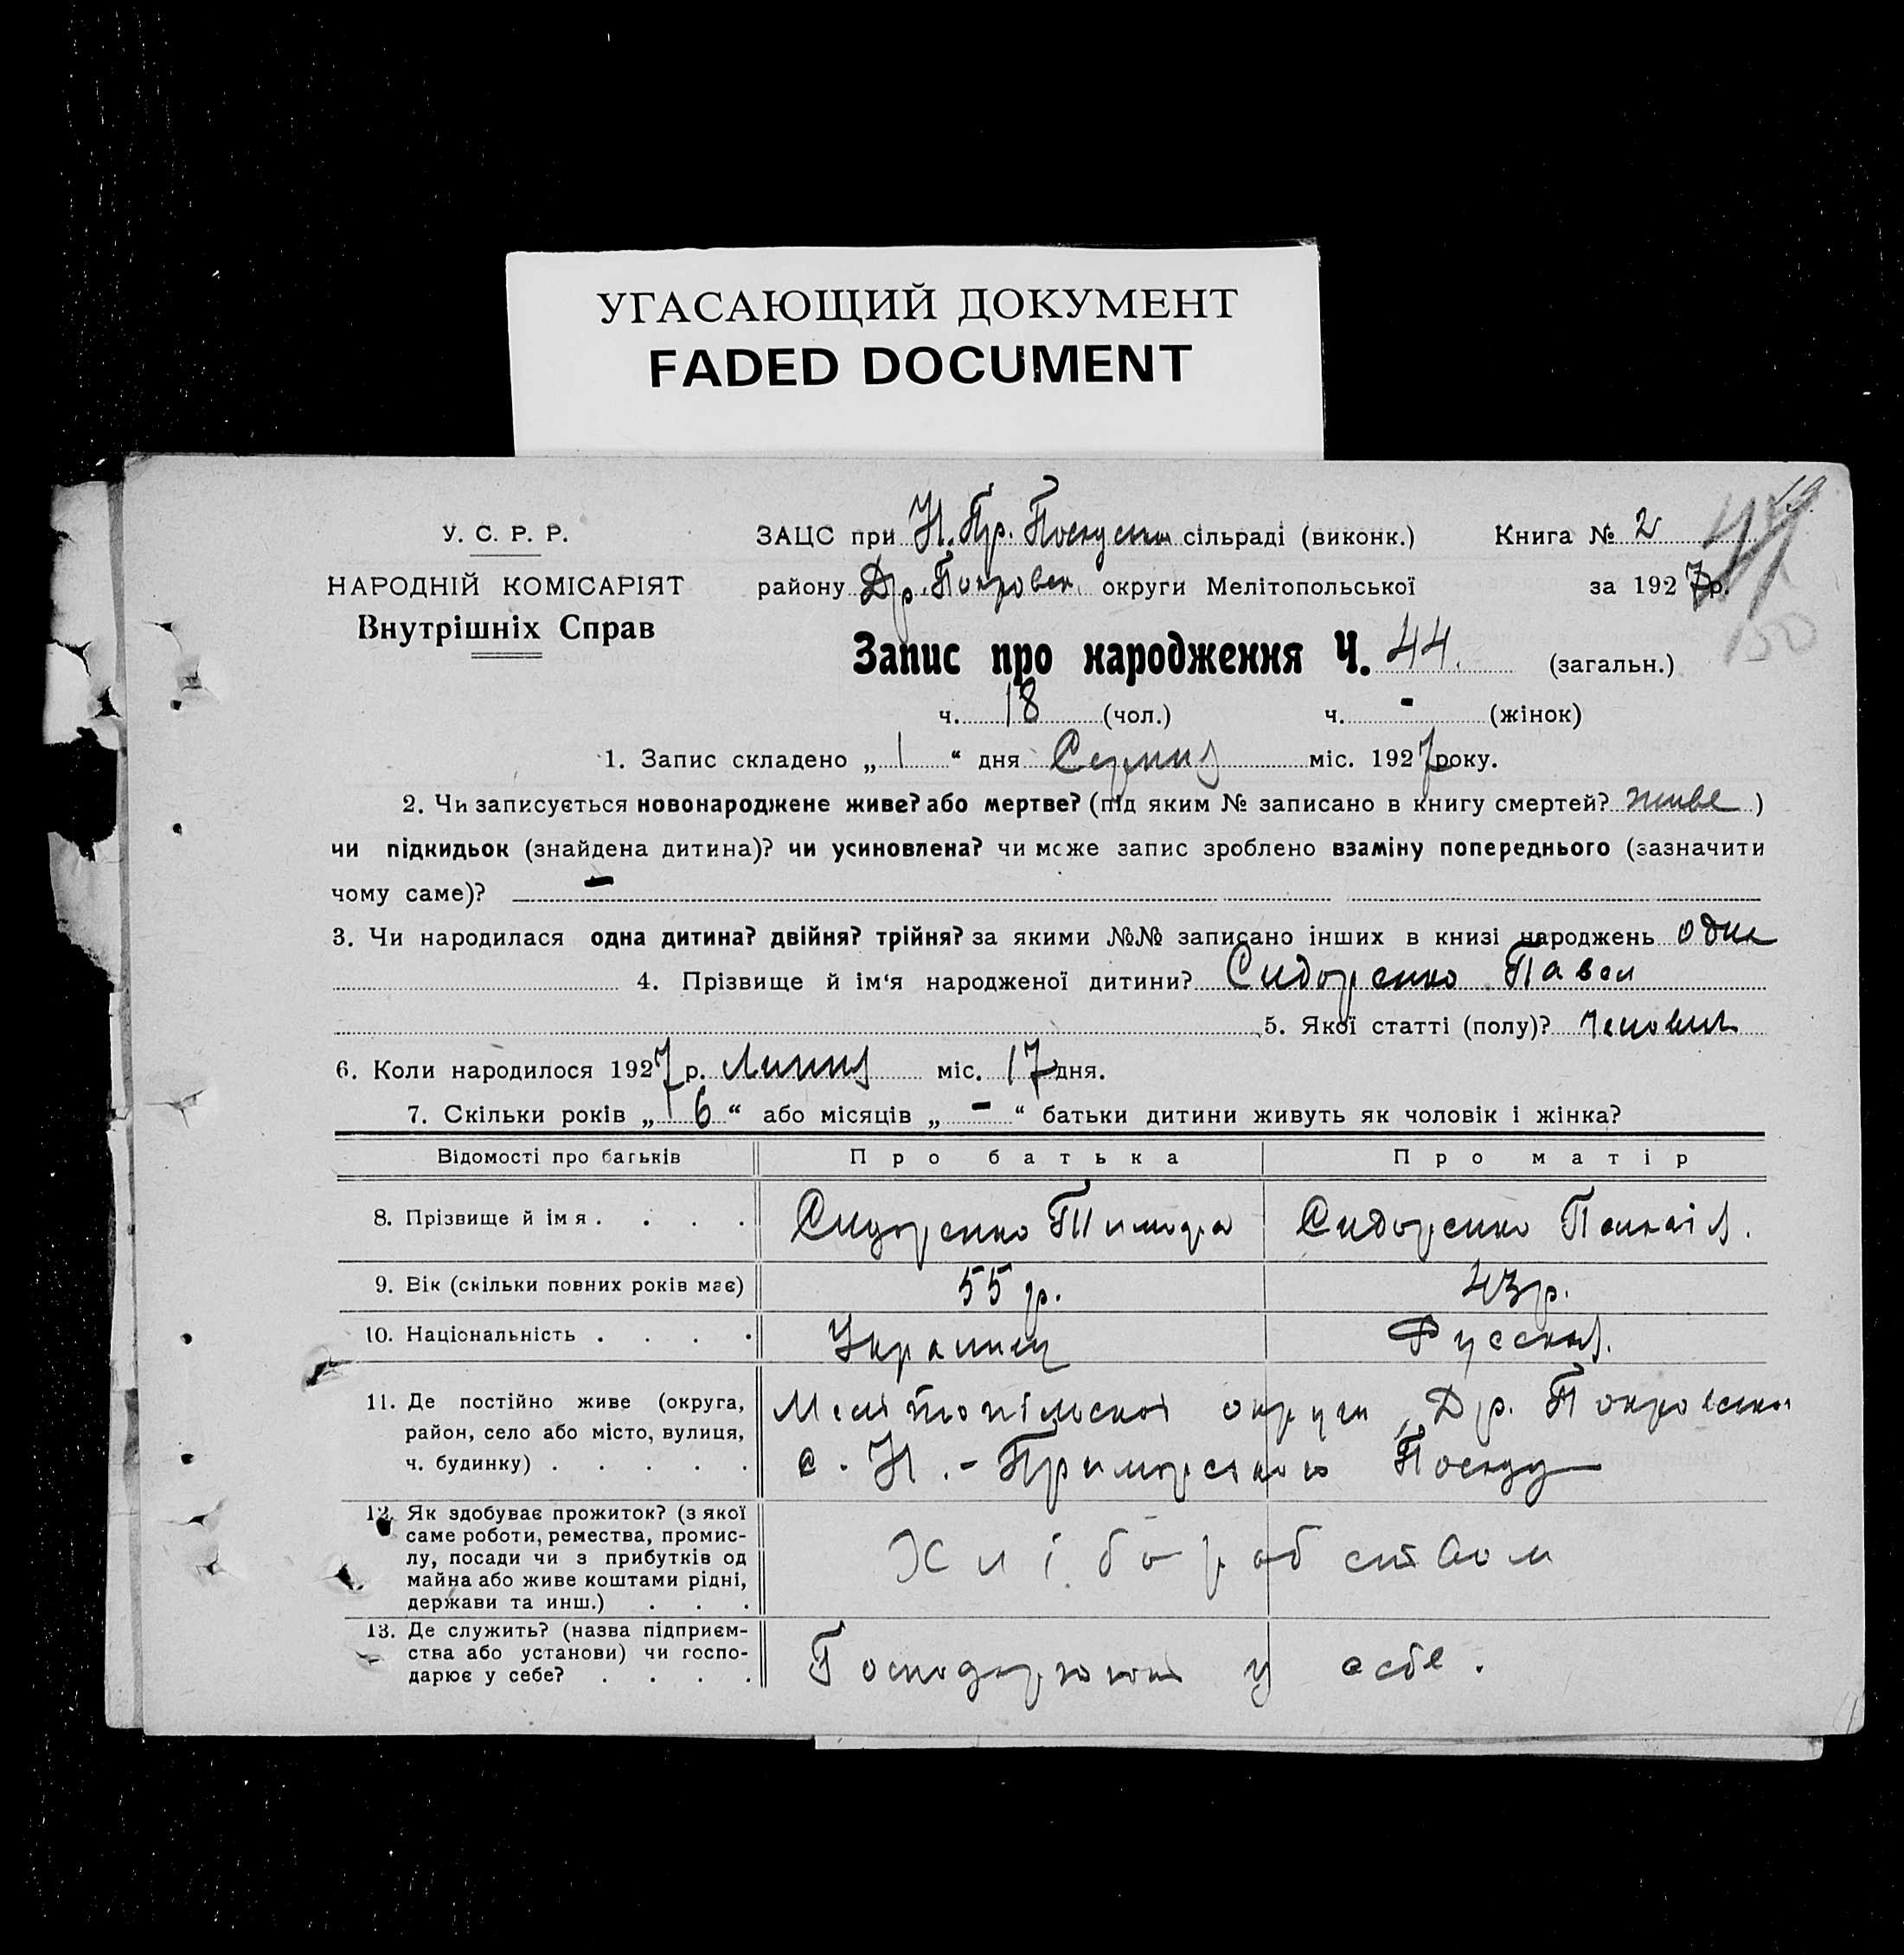 УГАСАЮЩИЙ ДОКУМЕНТ
FADED DOCUMENT
У. С. Р. Р.
НАРОДНІЙ КОМІСАРІЯТ
Внутрішніх Справ
ЗАЦС при Н. Пр. сільраді (виконк.) Книга № 2
району Др. Покровск. округи Мелітопольської за 1927 р.
150
Запис про народження Ч. 44. (загальн.)
ч. 18 (чол.) ч. - (жінок)
1. Запис складено „ 1 “ дня Серпня міс. 1927 року.
2. Чи записується новонароджене живе? або мертве? (під яким № записано в книгу смертей? живе )
чи підкидьок (знайдена дитина)? чи усиновлена? чи може запис зроблено взаміну попереднього (зазначити
чому саме)? -
3. Чи народилася одна дитина? двійня? трійня? за якими №№ записано інших в книзі народжень одне
4. Прізвище й ім‘я народженої дитини? Сидоренко Павел
5. Якої статті (полу)?
6. Коли народилося 1927 р. Липня міс. 17 дня.
7. Скільки років „ 6 “ або місяців „ - “ батьки дитини живуть як чоловік і жінка?
Відомості про батьків Про батька Про матір
8. Прізвище й імя . . . . Сидоренко Тимофа Сидоренко
9. Вік (скільки повних років має) 55 р. 43 р.
10. Національність . . . . Украинец Русская.
11. Де постійно живе (округа, район, село або місто, вулиця, ч. будинку) . . . . .
Мелітопільскої округи, Др. Покровского
с. Н.-Приморского Посаду
12. Як здобуває прожиток? (з якої
саме роботи, ремества, промис-
лу, посади чи з прибутків од
майна або живе коштами рідні,
держави та инш.) . . .
Хліборобством
13. Де служить? (назва підприєм-
ства або установи) чи госпо-
дарює у себе? . . . .
Господарюють у себе.